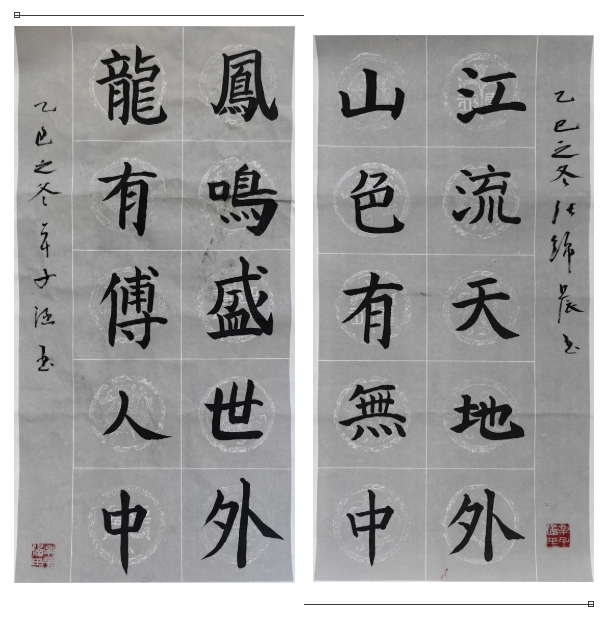 鳳鳴盛世外
龍有傅人中
乙巳之冬
江流天地外
山色有無中
乙巳之冬 錦晨